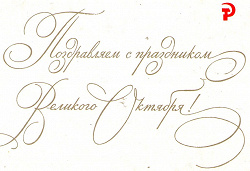 Поздравляем с праздником
Великого Октября!